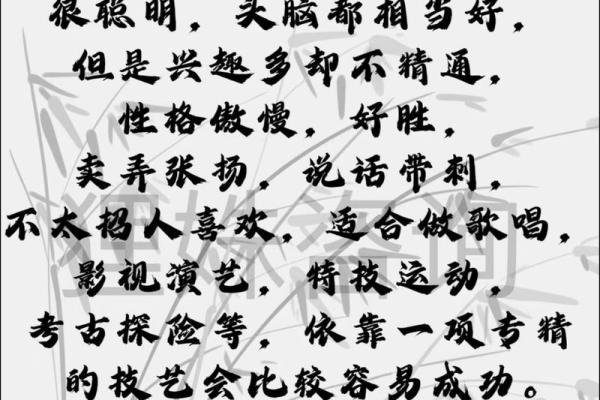 很聪明，头脑都相当好，
但是兴趣多却不精通，
性格傲慢，好胜，
卖弄张扬，说话带刺，
不太招人喜欢，适合做歌唱，
影视演艺，特技运动，
考古探险等，依靠一项专精
的技艺会比较容易成功。
狸姝咨询